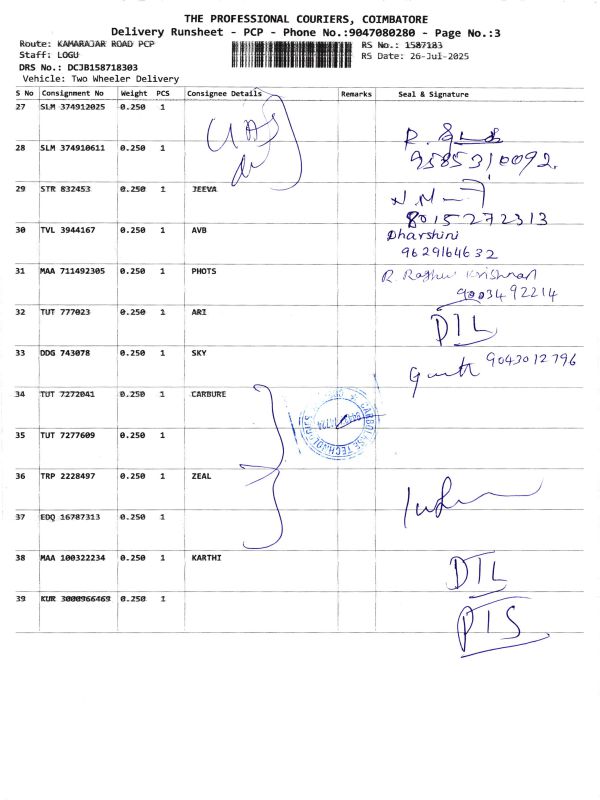 THE PROFESSIONAL COURIERS, COIMBATORE
Delivery Runsheet - PCP - Phone No.:9047080280 - Page No.:3
Route: KAMARAJAR ROAD PCP RS No.: 1587183
Staff: LOGU RS Date: 26-Jul-2025
DRS No.: DCJB158718303
Vehicle: Two Wheeler Delivery
S No Consignment No Weight PCS Consignee Details Remarks Seal & Signature
27 SLM 374912025 0.250 1
28 SLM 374910611 0.250 1
9585310092.
29 STR 832453 0.250 1 JEEVA
8015272313
30 TVL 3944167 0.250 1 AVB Dharshini
9629164632
31 MAA 711492305 0.250 1 PHOTS R. Raghu Krishnan
9003492214
32 TUT 777023 0.250 1 ARI DIL
33 DDG 743078 0.250 1 SKY 9043012796
34 TUT 7272041 0.250 1 CARBURE
35 TUT 7277609 0.250 1
36 TRP 2228497 0.250 1 ZEAL
37 EDQ 16787313 0.250 1
38 MAA 100322234 0.250 1 KARTHI DIL
39 KUR 3000966469 0.250 1 PIS